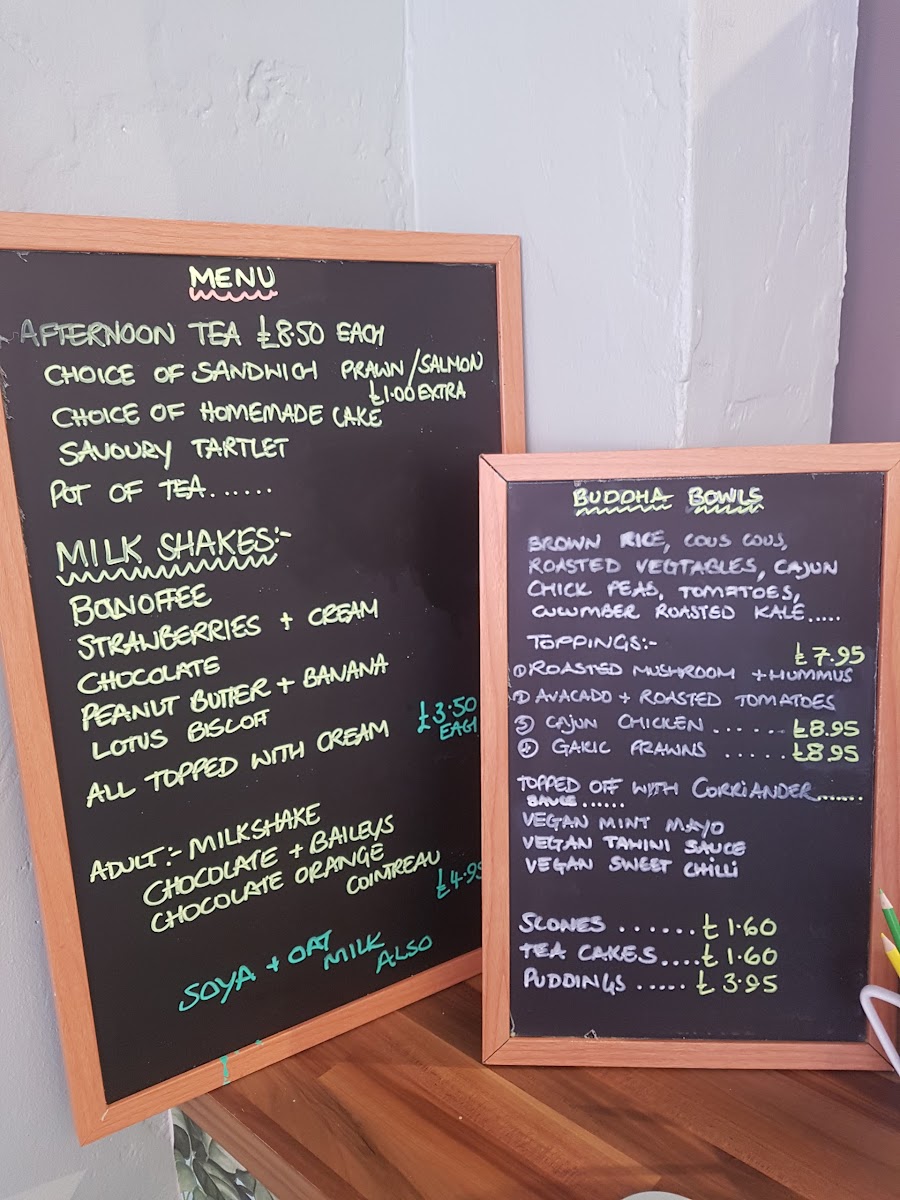 MENU
AFTERNOON TEA £8.50 EACH
CHOICE OF SANDWICH PRAWN/SALMON
£1.00 EXTRA
CHOICE OF HOMEMADE CAKE
SAVOURY TARTLET
POT OF TEA......
MILK SHAKES:-
BANOFFEE
STRAWBERRIES + CREAM
CHOCOLATE
PEANUT BUTTER + BANANA
LOTUS BISCOFF
£3.50
EACH
ALL TOPPED WITH CREAM
ADULT:- MILKSHAKE
CHOCOLATE + BAILEYS
CHOCOLATE ORANGE
COINTREAU
£4.95
SOYA + OAT
MILK
ALSO
BUDDHA BOWLS
BROWN RICE, COUS COUS,
ROASTED VEGTABLES, CAJUN
CHICK PEAS, TOMATOES,
CUCUMBER ROASTED KALE.....
TOPPINGS:-
£7.95
① ROASTED MUSHROOM + HUMMUS
② AVACADO + ROASTED TOMATOES
③ CAJUN CHICKEN ...... £8.95
④ GARLIC PRAWNS ..... £8.95
TOPPED OFF WITH CORRIANDER......
SAUCE......
VEGAN MINT MAYO
VEGAN TAHINI SAUCE
VEGAN SWEET CHILLI
SCONES ...... £1.60
TEA CAKES.... £1.60
PUDDINGS ..... £3.95